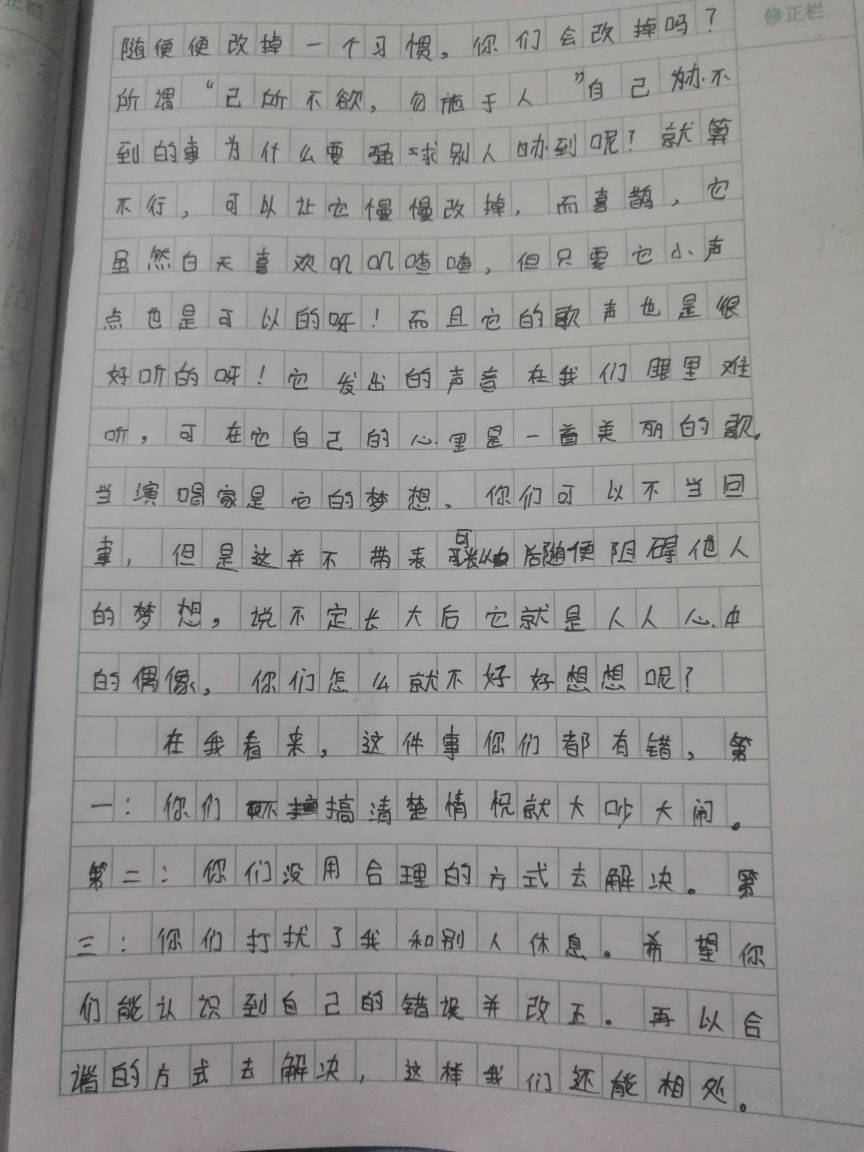 修正栏
随便便改掉一个习惯，你们会改掉吗？
所谓“己所不欲，勿施于人”自己办不
到的事为什么要强求别人办到呢？就算
不行，可以让它慢慢改掉，而喜鹊，它
虽然白天喜欢叽叽喳喳，但只要它小声
点也是可以的呀！而且它的歌声也是很
好听的呀！它发出的声音在我们眼里难
听，可在它自己的心里是一首美丽的歌。
当演唱家是它的梦想，你们可以不当回
事，但是这并不带表可以随便阻碍他人
的梦想，说不定长大后它就是人人心中
的偶像，你们怎么就不好好想想呢？
在我看来，这件事你们都有错，第
一：你们不搞清楚情况就大吵大闹。
第二：你们没用合理的方式去解决。第
三：你们打扰了我和别人休息。希望你
们能认识到自己的错误并改正。再以合
谐的方式去解决，这样我们还能相处。